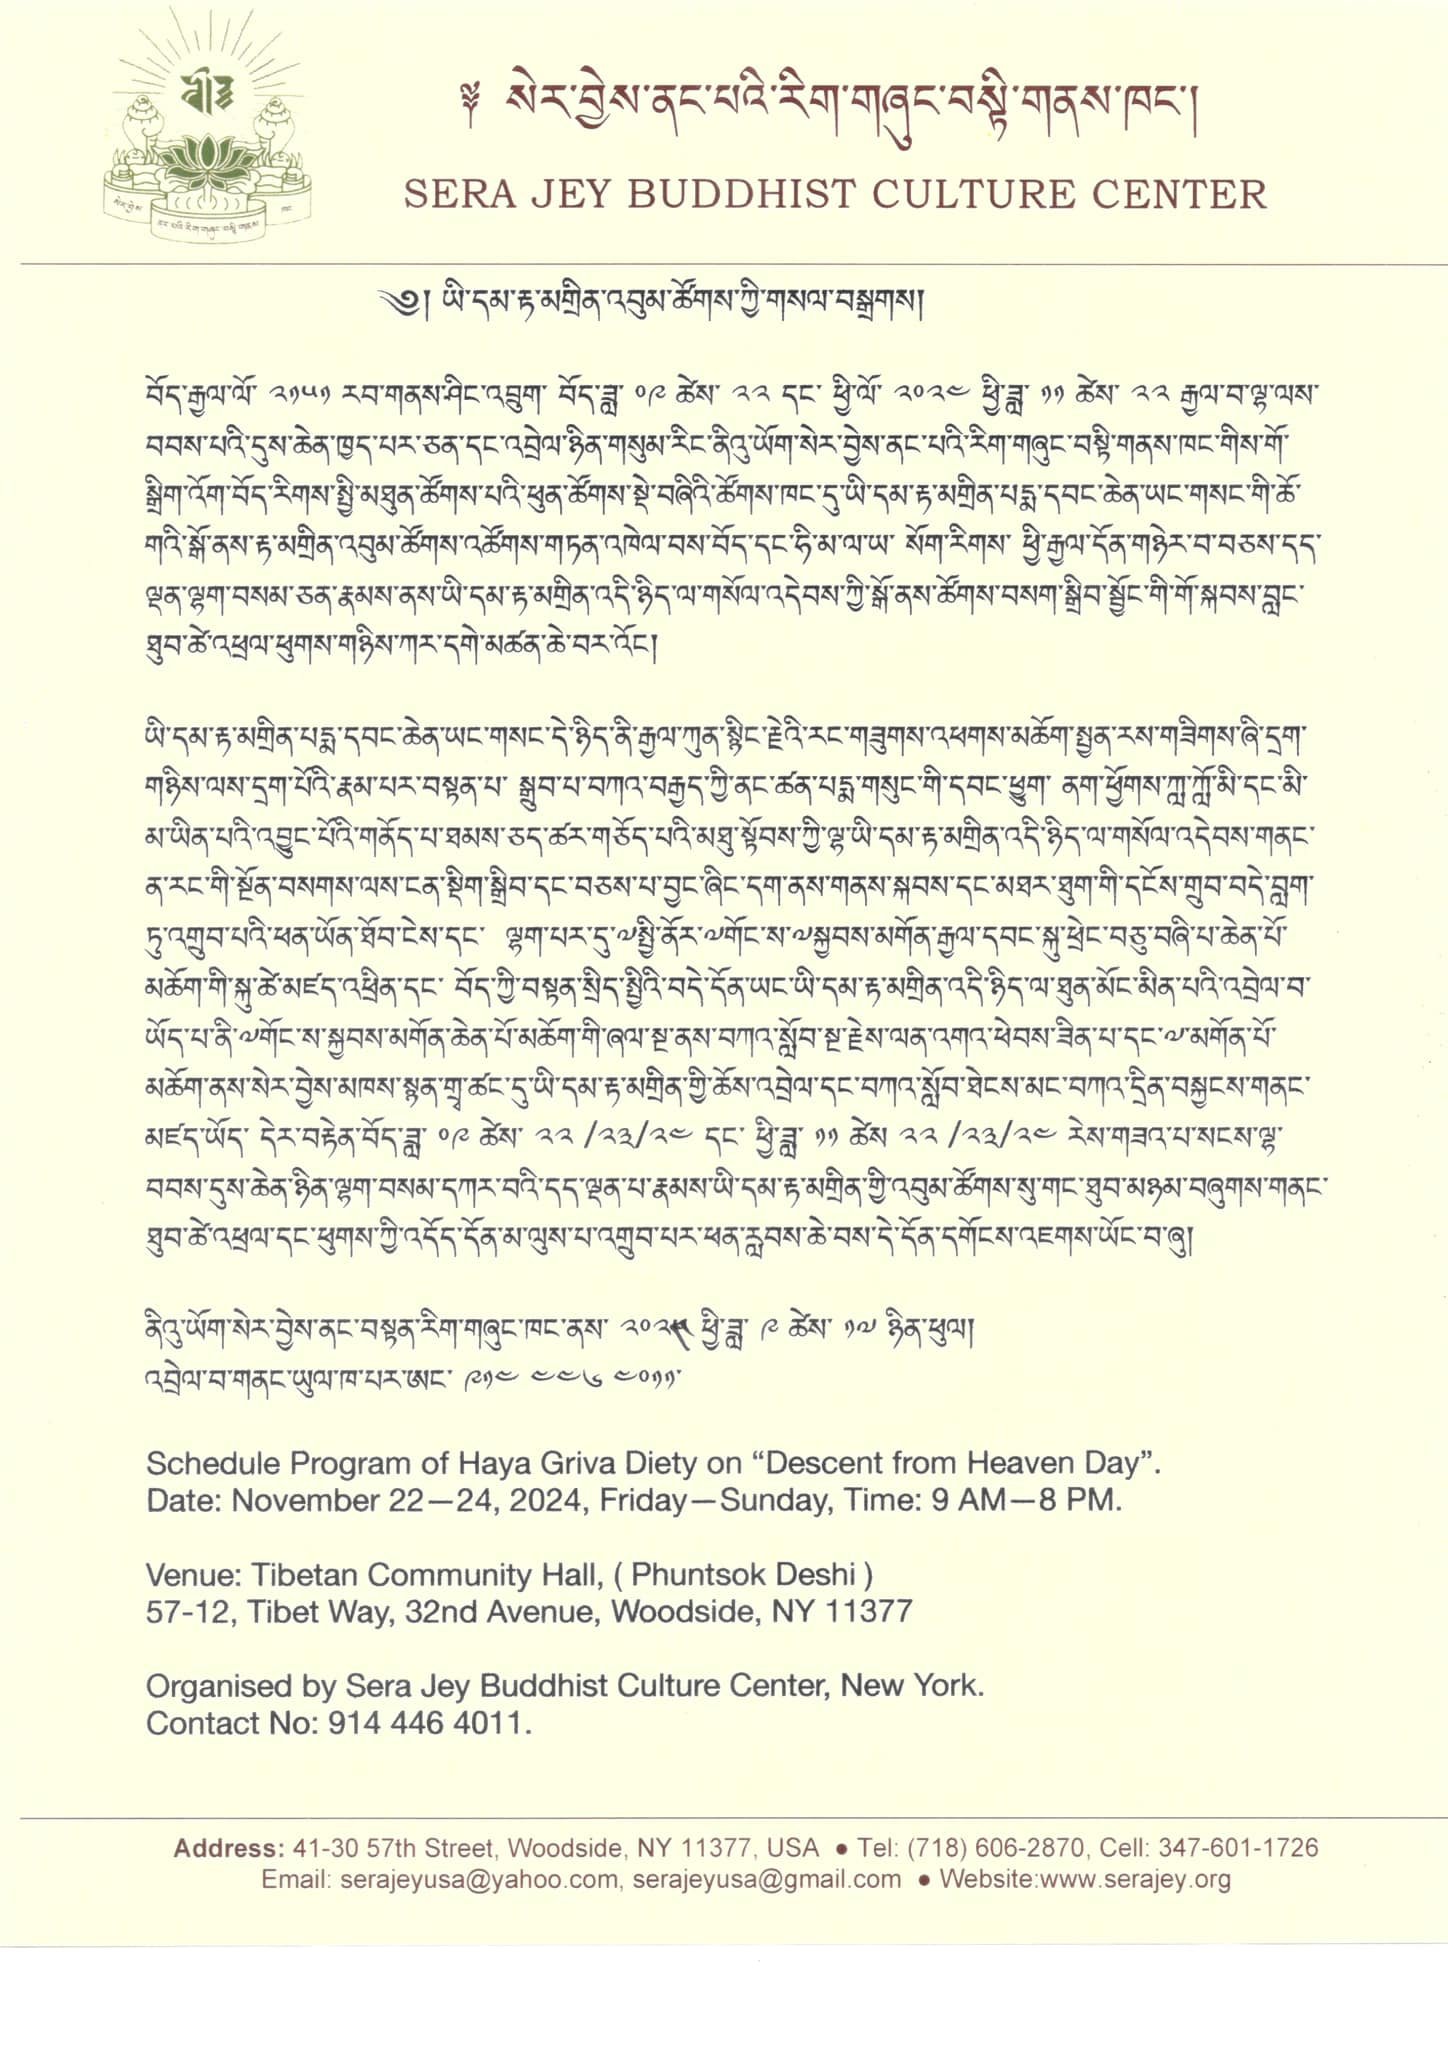 ༈ སེར་བྱེས་ནང་པའི་རིག་གཞུང་བསྟི་གནས་ཁང་།
SERA JEY BUDDHIST CULTURE CENTER
སེར་བྱེས
ནང་པའི་རིག་གཞུང་བསྟི་གནས
ཁང
༄། ཡི་དམ་རྟ་མགྲིན་འབུམ་ཚོགས་ཀྱི་གསལ་བསྒྲགས།
བོད་རྒྱལ་ལོ་ ༢༡༥༡ རབ་གནས་ཤིང་འབྲུག་ བོད་ཟླ་ ༠༩ ཚེས་ ༢༢ དང་ ཕྱི་ལོ་ ༢༠༢༤ ཕྱི་ཟླ་ ༡༡ ཚེས་ ༢༢ རྒྱལ་བ་ལྷ་ལས་
བབས་པའི་དུས་ཆེན་ཁྱད་པར་ཅན་དང་འབྲེལ་ཉིན་གསུམ་རིང་ནིའུ་ཡོག་སེར་བྱེས་ནང་པའི་རིག་གཞུང་བསྟི་གནས་ཁང་གིས་གོ་
སྒྲིག་འོག་བོད་རིགས་སྤྱི་མཐུན་ཚོགས་པའི་ཕུན་ཚོགས་སྡེ་བཞིའི་ཚོགས་ཁང་དུ་ཡི་དམ་རྟ་མགྲིན་པདྨ་དབང་ཆེན་ཡང་གསང་གི་ཆོ་
གའི་སྒོ་ནས་རྟ་མགྲིན་འབུམ་ཚོགས་འཚོགས་གཏན་འཁེལ་བས་བོད་དང་ཧི་མ་ལ་ཡ་ སོག་རིགས་ ཕྱི་རྒྱལ་དོན་གཉེར་བ་བཅས་དད་
ལྡན་ལྷག་བསམ་ཅན་རྣམས་ནས་ཡི་དམ་རྟ་མགྲིན་འདི་ཉིད་ལ་གསོལ་འདེབས་ཀྱི་སྒོ་ནས་ཚོགས་བསག་སྒྲིབ་སྦྱོང་གི་གོ་སྐབས་བླང་
ཐུབ་ཚེ་འཕྲལ་ཕུགས་གཉིས་ཀར་དགེ་མཚན་ཆེ་བར་འོང་།
ཡི་དམ་རྟ་མགྲིན་པདྨ་དབང་ཆེན་ཡང་གསང་དེ་ཉིད་ནི་རྒྱལ་ཀུན་སྙིང་རྗེའི་རང་གཟུགས་འཕགས་མཆོག་སྤྱན་རས་གཟིགས་ཞི་དྲག་
གཉིས་ལས་དྲག་པོའི་རྣམ་པར་བསྟན་པ་ སྒྲུབ་པ་བཀའ་བརྒྱད་ཀྱི་ནང་ཚན་པདྨ་གསུང་གི་དབང་ཕྱུག་ ནག་ཕྱོགས་ཀླ་ཀློ་མི་དང་མི་
མ་ཡིན་པའི་འབྱུང་པོའི་གནོད་པ་ཐམས་ཅད་ཚར་གཅོད་པའི་མཐུ་སྟོབས་ཀྱི་ལྷ་ཡི་དམ་རྟ་མགྲིན་འདི་ཉིད་ལ་གསོལ་འདེབས་གནང་
ན་རང་གི་སྔོན་བསགས་ལས་ངན་སྡིག་སྒྲིབ་དང་བཅས་པ་བྱང་ཞིང་དག་ནས་གནས་སྐབས་དང་མཐར་ཐུག་གི་དངོས་གྲུབ་བདེ་བླག་
ཏུ་འགྲུབ་པའི་ཕན་ཡོན་ཐོབ་ངེས་དང་ ལྷག་པར་དུ་༧སྤྱི་ནོར་༧གོང་ས་༧སྐྱབས་མགོན་རྒྱལ་དབང་སྐུ་ཕྲེང་བཅུ་བཞི་པ་ཆེན་པོ་
མཆོག་གི་སྐུ་ཚེ་མཛད་འཕྲིན་དང་ བོད་ཀྱི་བསྟན་སྲིད་སྤྱིའི་བདེ་དོན་ཡང་ཡི་དམ་རྟ་མགྲིན་འདི་ཉིད་ལ་ཐུན་མོང་མིན་པའི་འབྲེལ་བ་
ཡོད་པ་ནི་༧གོང་ས་སྐྱབས་མགོན་ཆེན་པོ་མཆོག་གི་ཞལ་སྔ་ནས་བཀའ་སློབ་སྔ་རྗེས་ལན་འགའ་ཕེབས་ཟིན་པ་དང་༧་མགོན་པོ་
མཆོག་ནས་སེར་བྱེས་མཁས་སྙན་གྲྭ་ཚང་དུ་ཡི་དམ་རྟ་མགྲིན་གྱི་ཆོས་འབྲེལ་དང་བཀའ་སློབ་ཐེངས་མང་བཀའ་དྲིན་བསྐྱངས་གནང་
མཛད་ཡོད་ དེར་བརྟེན་བོད་ཟླ་ ༠༩ ཚེས་ ༢༢ /༢༣/༢༤ དང་ ཕྱི་ཟླ་ ༡༡ ཚེས ༢༢ /༢༣/༢༤ རེས་གཟའ་པ་སངས་ལྷ་
བབས་དུས་ཆེན་ཉིན་ལྷག་བསམ་དཀར་བའི་དད་ལྡན་པ་རྣམས་ཡི་དམ་རྟ་མགྲིན་གྱི་འབུམ་ཚོགས་སུ་གང་ཐུབ་མཉམ་བཞུགས་གནང་
ཐུབ་ཚེ་འཕྲལ་དང་ཕུགས་ཀྱི་འདོད་དོན་མ་ལུས་པ་འགྲུབ་པར་ཕན་རླབས་ཆེ་བས་དེ་དོན་དགོངས་འཇགས་ཡོང་བ་ཞུ།
ནིའུ་ཡོག་སེར་བྱེས་ནང་བསྟན་རིག་གཞུང་ཁང་ནས་ ཕྱི་ཟླ་ ༩ ཚེས་ ༡༧ ཉིན་ཕུལ།
འབྲེལ་བ་གནང་ཡུལ་ཁ་པར་ཨང་ ༩༡༤ ༤༤༦ ༤༠༡༡་
Schedule Program of Haya Griva Diety on “Descent from Heaven Day”.
Date: November 22—24, 2024, Friday—Sunday, Time: 9 AM—8 PM.
Venue: Tibetan Community Hall, ( Phuntsok Deshi )
57-12, Tibet Way, 32nd Avenue, Woodside, NY 11377
Organised by Sera Jey Buddhist Culture Center, New York.
Contact No: 914 446 4011.
Address: 41-30 57th Street, Woodside, NY 11377, USA ● Tel: (718) 606-2870, Cell: 347-601-1726
Email: serajeyusa@yahoo.com, serajeyusa@gmail.com ● Website:www.serajey.org